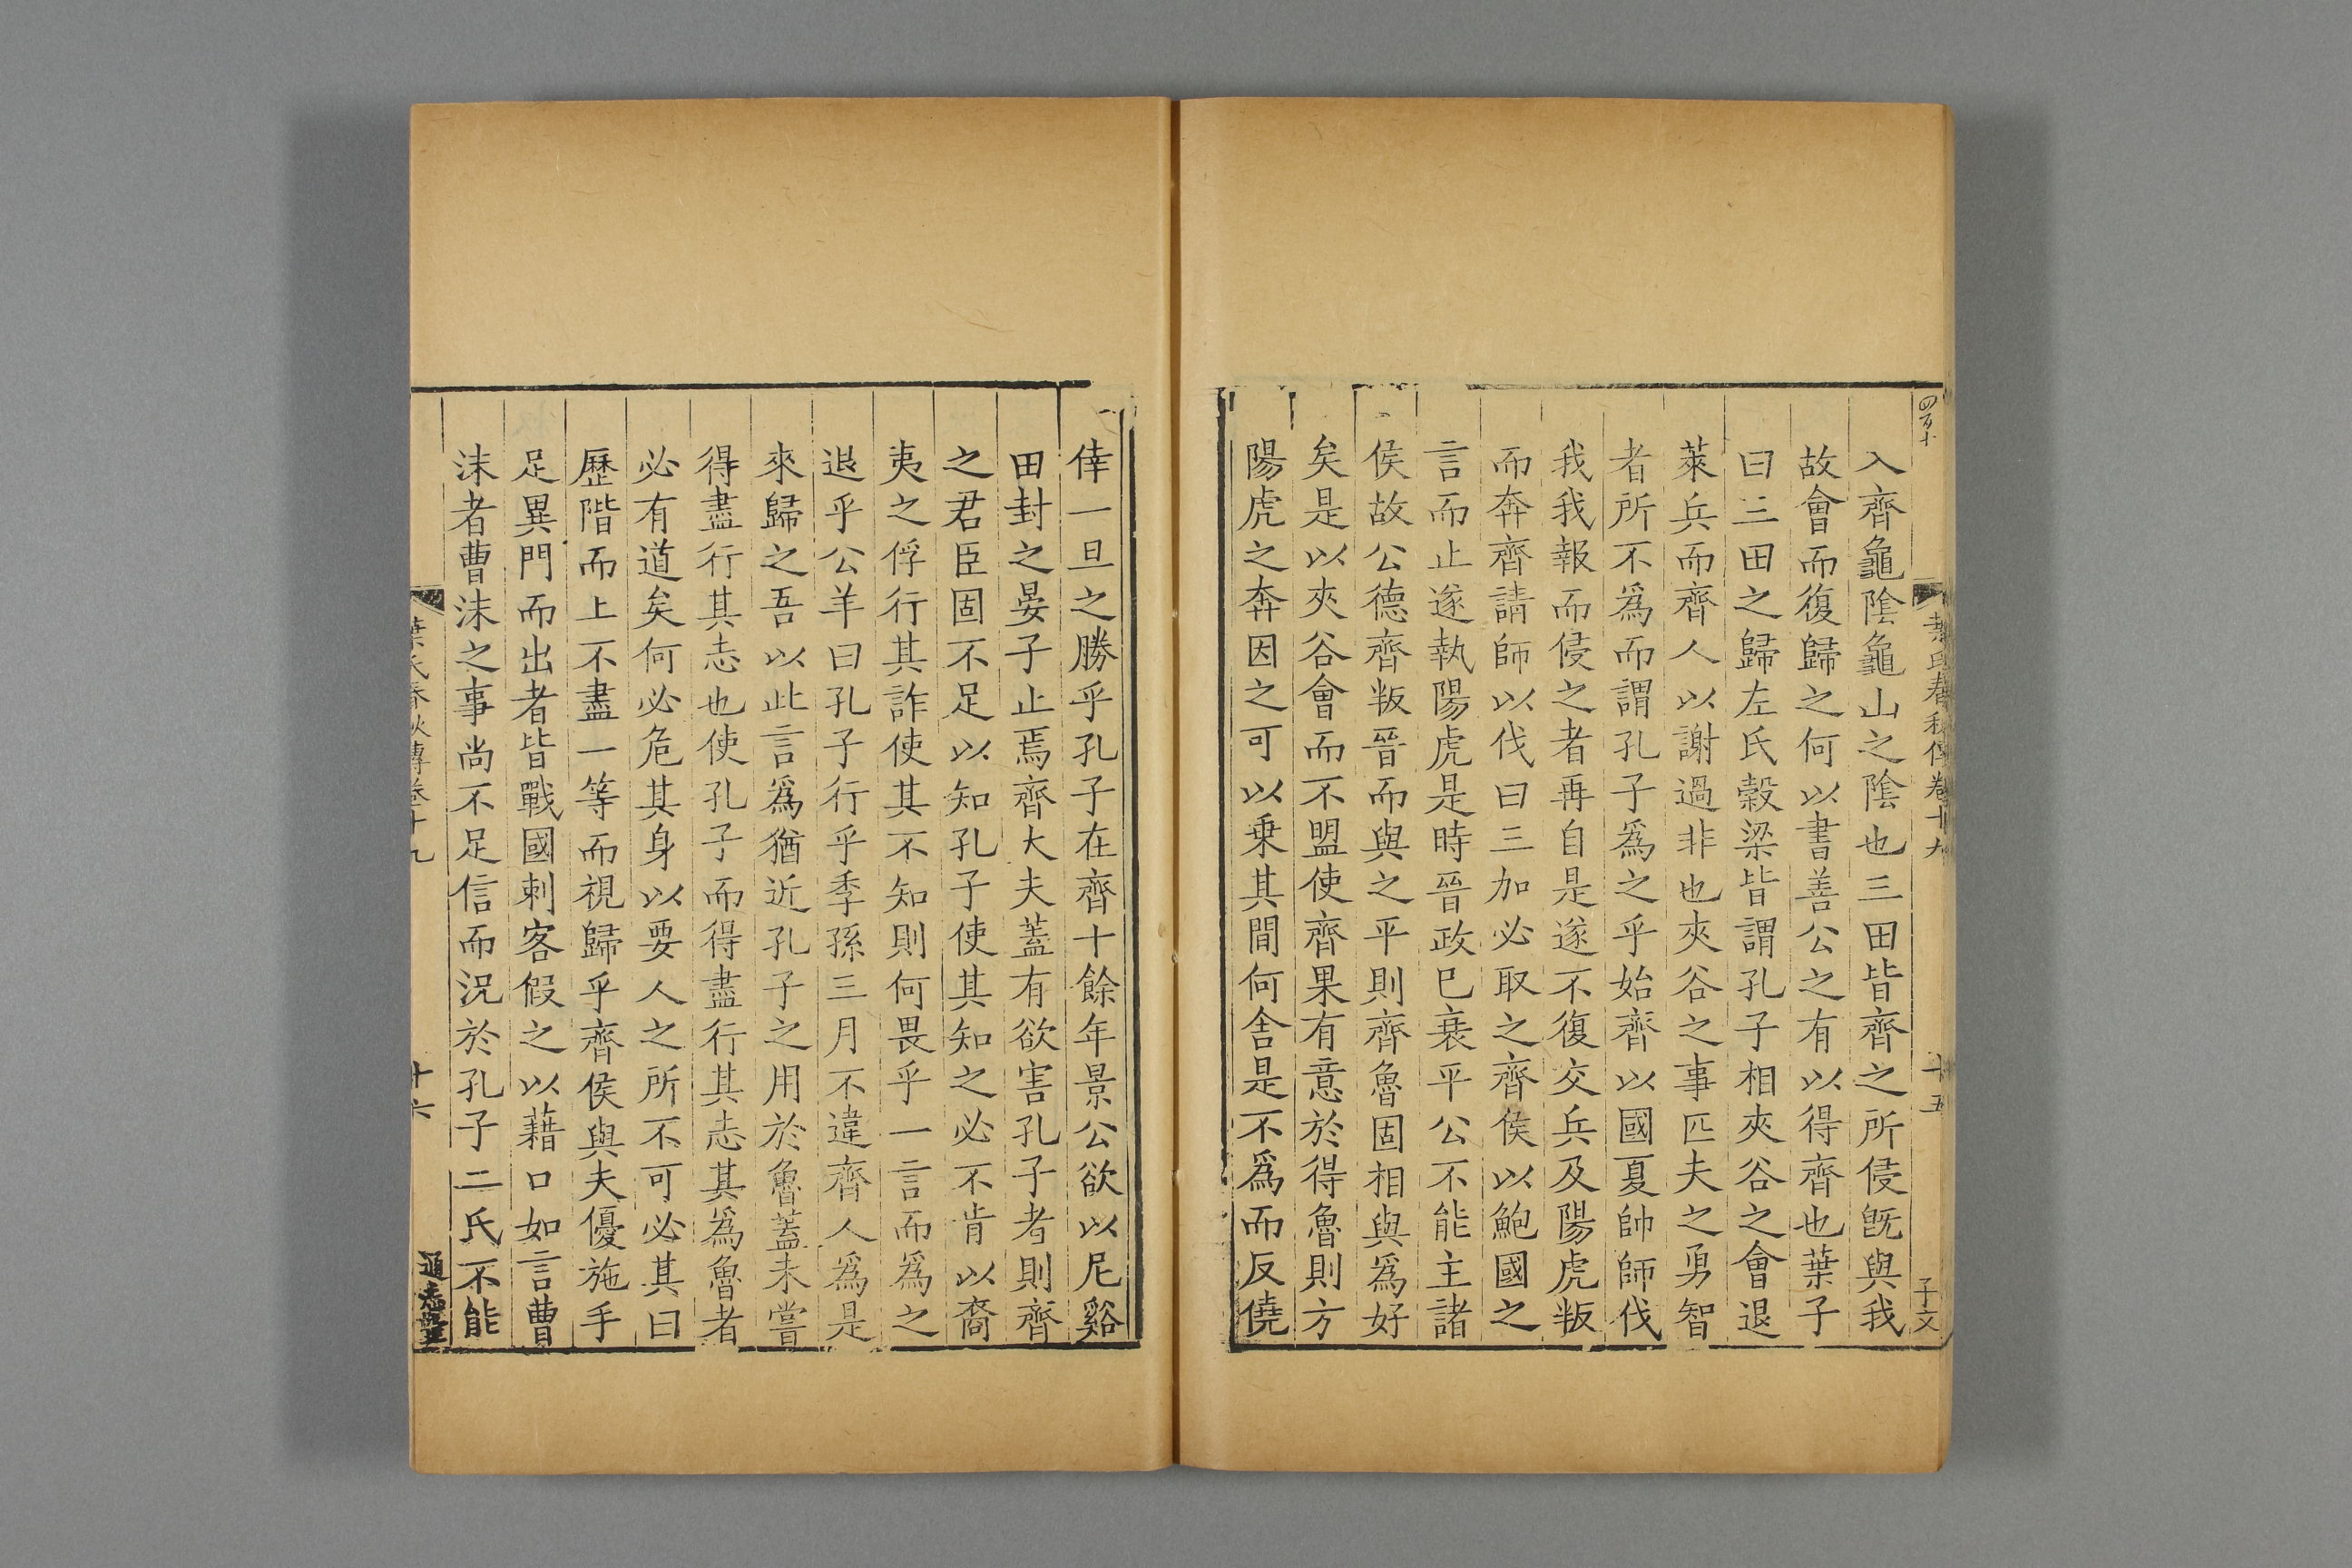 四百十
葉氏春秋傳卷十九
十五
子文
入齊龜陰龜山之陰也三田皆齊之所侵旣與我
故會而復歸之何以書善公之有以得齊也葉子
曰三田之歸左氏穀梁皆謂孔子相夾谷之會退
萊兵而齊人以謝過非也夾谷之事匹夫之勇智
者所不爲而謂孔子爲之乎始齊以國夏帥師伐
我我報而侵之者再自是遂不復交兵及陽虎叛
而奔齊請師以伐曰三加必取之齊侯以鮑國之
言而止遂執陽虎是時晉政已衰平公不能主諸
侯故公德齊叛晉而與之平則齊魯固相與爲好
矣是以夾谷會而不盟使齊果有意於得魯則方
陽虎之奔因之可以乗其間何舍是不爲而反僥
倖一旦之勝乎孔子在齊十餘年景公欲以尼谿
田封之晏子止焉齊大夫蓋有欲害孔子者則齊
之君臣固不足以知孔子使其知之必不肯以裔
夷之俘行其詐使其不知則何畏乎一言而爲之
退乎公羊曰孔子行乎季孫三月不違齊人爲是
來歸之吾以此言爲猶近孔子之用於魯蓋未嘗
得盡行其志也使孔子而得盡行其志其爲魯者
必有道矣何必危其身以要人之所不可必其曰
歷階而上不盡一等而視歸乎齊侯與夫優施手
足異門而出者皆戰國刺客假之以藉口如言曹
沬者曹沬之事尚不足信而況於孔子二氏不能
葉氏春秋傳卷十九
十六
通志堂